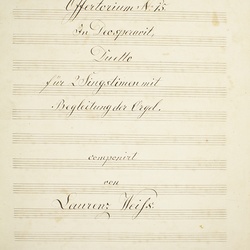 Offertorium No 15.
In Deo speravit.
Duetto
für 2 Singstimen mit
Begleitung der Orgel.
componirt
von
Laurenz Weiß.